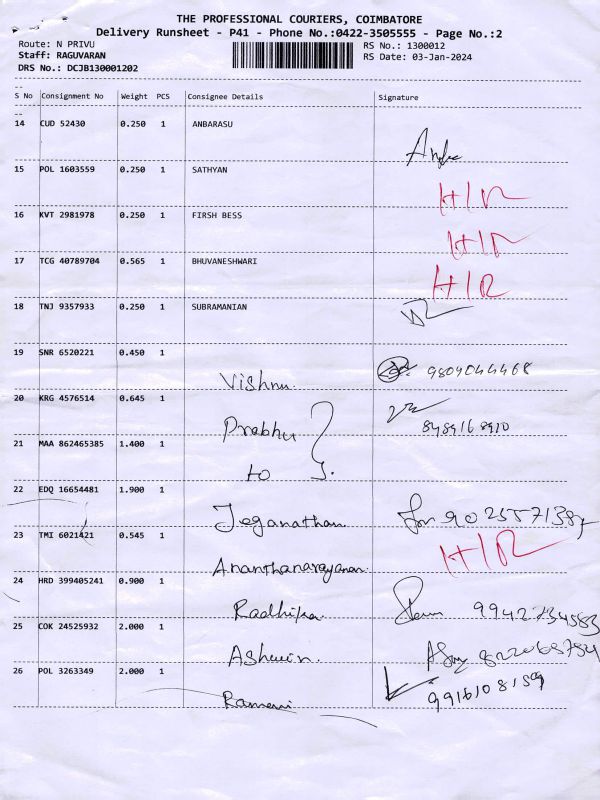 THE PROFESSIONAL COURIERS, COIMBATORE
Delivery Runsheet - P41 - Phone No.:0422-3505555 - Page No.:2
Route: N PRIVU RS No.: 1300012
Staff: RAGUVARAN RS Date: 03-Jan-2024
DRS No.: DCJB130001202
S No Consignment No Weight PCS Consignee Details Signature
14 CUD 52430 0.250 1 ANBARASU
15 POL 1603559 0.250 1 SATHYAN H/R
16 KVT 2981978 0.250 1 FIRSH BESS H/R
17 TCG 40789704 0.565 1 BHUVANESHWARI H/R
18 TNJ 9357933 0.250 1 SUBRAMANIAN
19 SNR 6520221 0.450 1 Vishnu. 9809044468
20 KRG 4576514 0.645 1 Prabhu 8489168910
21 MAA 862465385 1.400 1 to
22 EDQ 16654481 1.900 1 Jeganathan
23 TMI 6021421 0.545 1 Ananthanarayanan. H/R
24 HRD 399405241 0.900 1 Radhika 9942734583
25 COK 24525932 2.000 1 Ashwin.
26 POL 3263349 2.000 1 Ramani